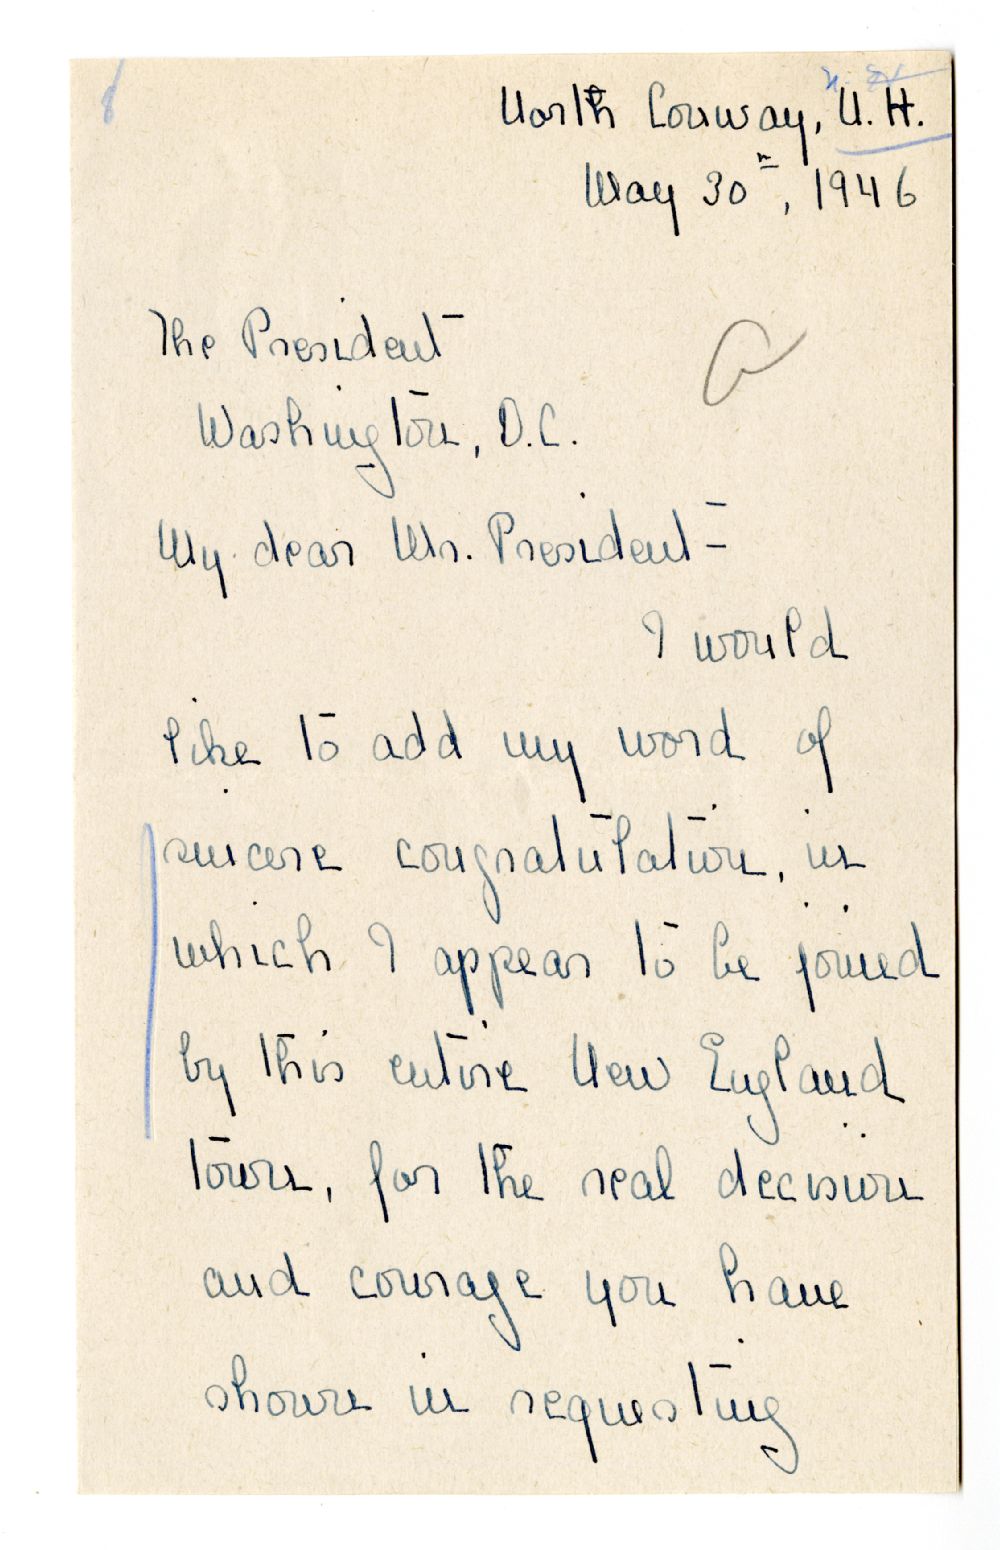 North Conway, N.H.
May 30th, 1946
The President
Washington, D.C.
My dear Mr. President-
I would
like to add my word of
sincere congratulation, in
which I appear to be joined
by this entire New England
town, for the real decision
and courage you have
shown in requesting